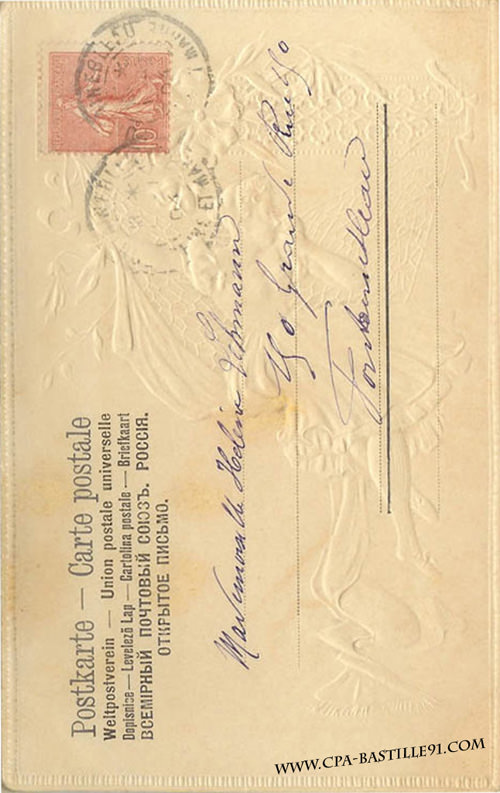 Postkarte — Carte postale
Weltpostverein — Union postale universelle
Dopisnice — Levelező Lap — Cartolina postale — Briefkaart
ВСЕМІРНЫЙ ПОЧТОВЫЙ СОЮЗЪ. РОССІЯ.
ОТКРЫТОЕ ПИСЬМО.
10
ET MA
Mademoiselle Hélène
150 Grande Rue 150
Fontainebleau
WWW.CPA-BASTILLE91.COM